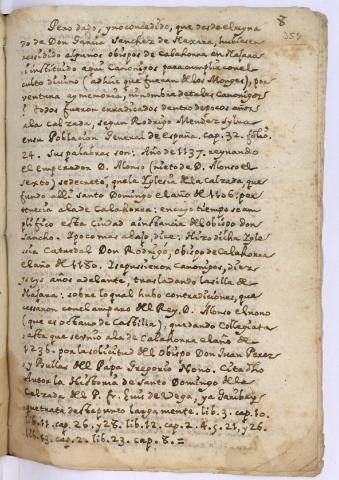 8
354
Pero dado, y no concedido, que desde el reyna
do de Don Garcia Sanchez de Naxara, hubiesen
residido algunos obispos de Calahorra en Najara
è instituido aqui Canonigos para cumplir con el
culto divino (ad huc que fueran de los Monges), por
ventura ay memoria, ni nombre de tales Canonigos?
y todos fueron erradicados dentro de pocos años
a la Calzada, segun Rodrigo Mendez Sylva
en su Poblacion General de España, cap. 32. folio.
24. Sus palabras son: Año de 1137. reynando
el emperador D. Alonso (nieto de D. Alonso el
sexto) se decretó, que la Yglesia de la Calzada, que
fundo alli Santo Domingo el año de 1106. per
tenecia a la de Calahorra: en cuyo tiempo se am
plificó esta Ciudad a instancia del obispo don
Sancho. Y poco mas abajo, dice: Hizo dicha Ygle
sia Cathedral Don Rodrigo, obispo de Calahorra
el año de 1180. Y se pusieron Canonigos, diez
y seys años adelante, trasladando la silla de
Najara: sobre lo qual hubo contradiciones, que
cesaron con el amparo del Rey D. Alonso el nono
(que es octavo de Castilia), quedando Collegiata
esta que se unio a la de Calahorra el año de
1236. por la solicitud del Obispo Don Juan Perez
y Bullas del Papa Gregorio Nono. Cita dho
Autor la Historia de Santo Domingo de la
Calzada del P. fr. Luis de Vega, y a Garibay
que trata de este punto largamente. lib. 3. cap. 10.
lib. 11. cap. 26. y 28. lib. 12. cap. 2. 4. 5. 21. y 26.
lib. 13. cap. 2. lib. 23. cap. 8. =